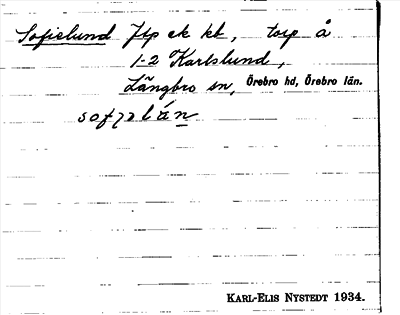 Sofielund Jtp ek kt, torp å
1-2 Karlslund,
Längbro sn, Örebro hd, Örebro län.
sofɿalán
KARL-ELIS NYSTEDT 1934.